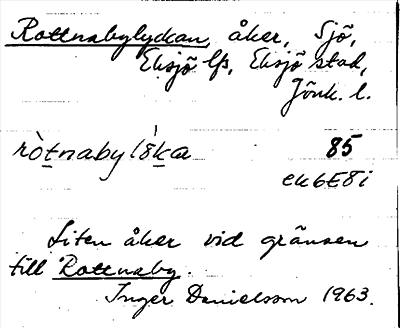 Rottnabylyckan, åker, Sjö,
Eksjö lfs, Eksjö stad,
Jönk. l.
85
ek6E8i
Liten åker vid gränsen
till Rottnaby.
Inger Danielsson 1963.